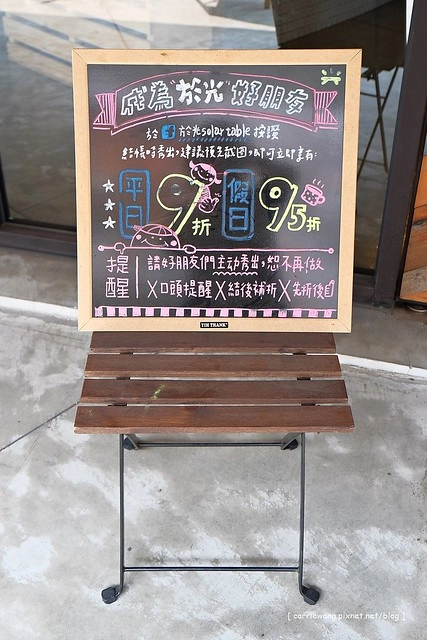 成為"於光"好朋友
於 f 於光solar table 按讚
結帳時秀出,建議預先截圖,即可立即享有:
平日 9折 假日 95折
提醒 請好朋友們主動秀出,恕不再做
X口頭提醒 X結後補折 X先折後
YIH THANK
[ carriewang.pixnet.net/blog ]